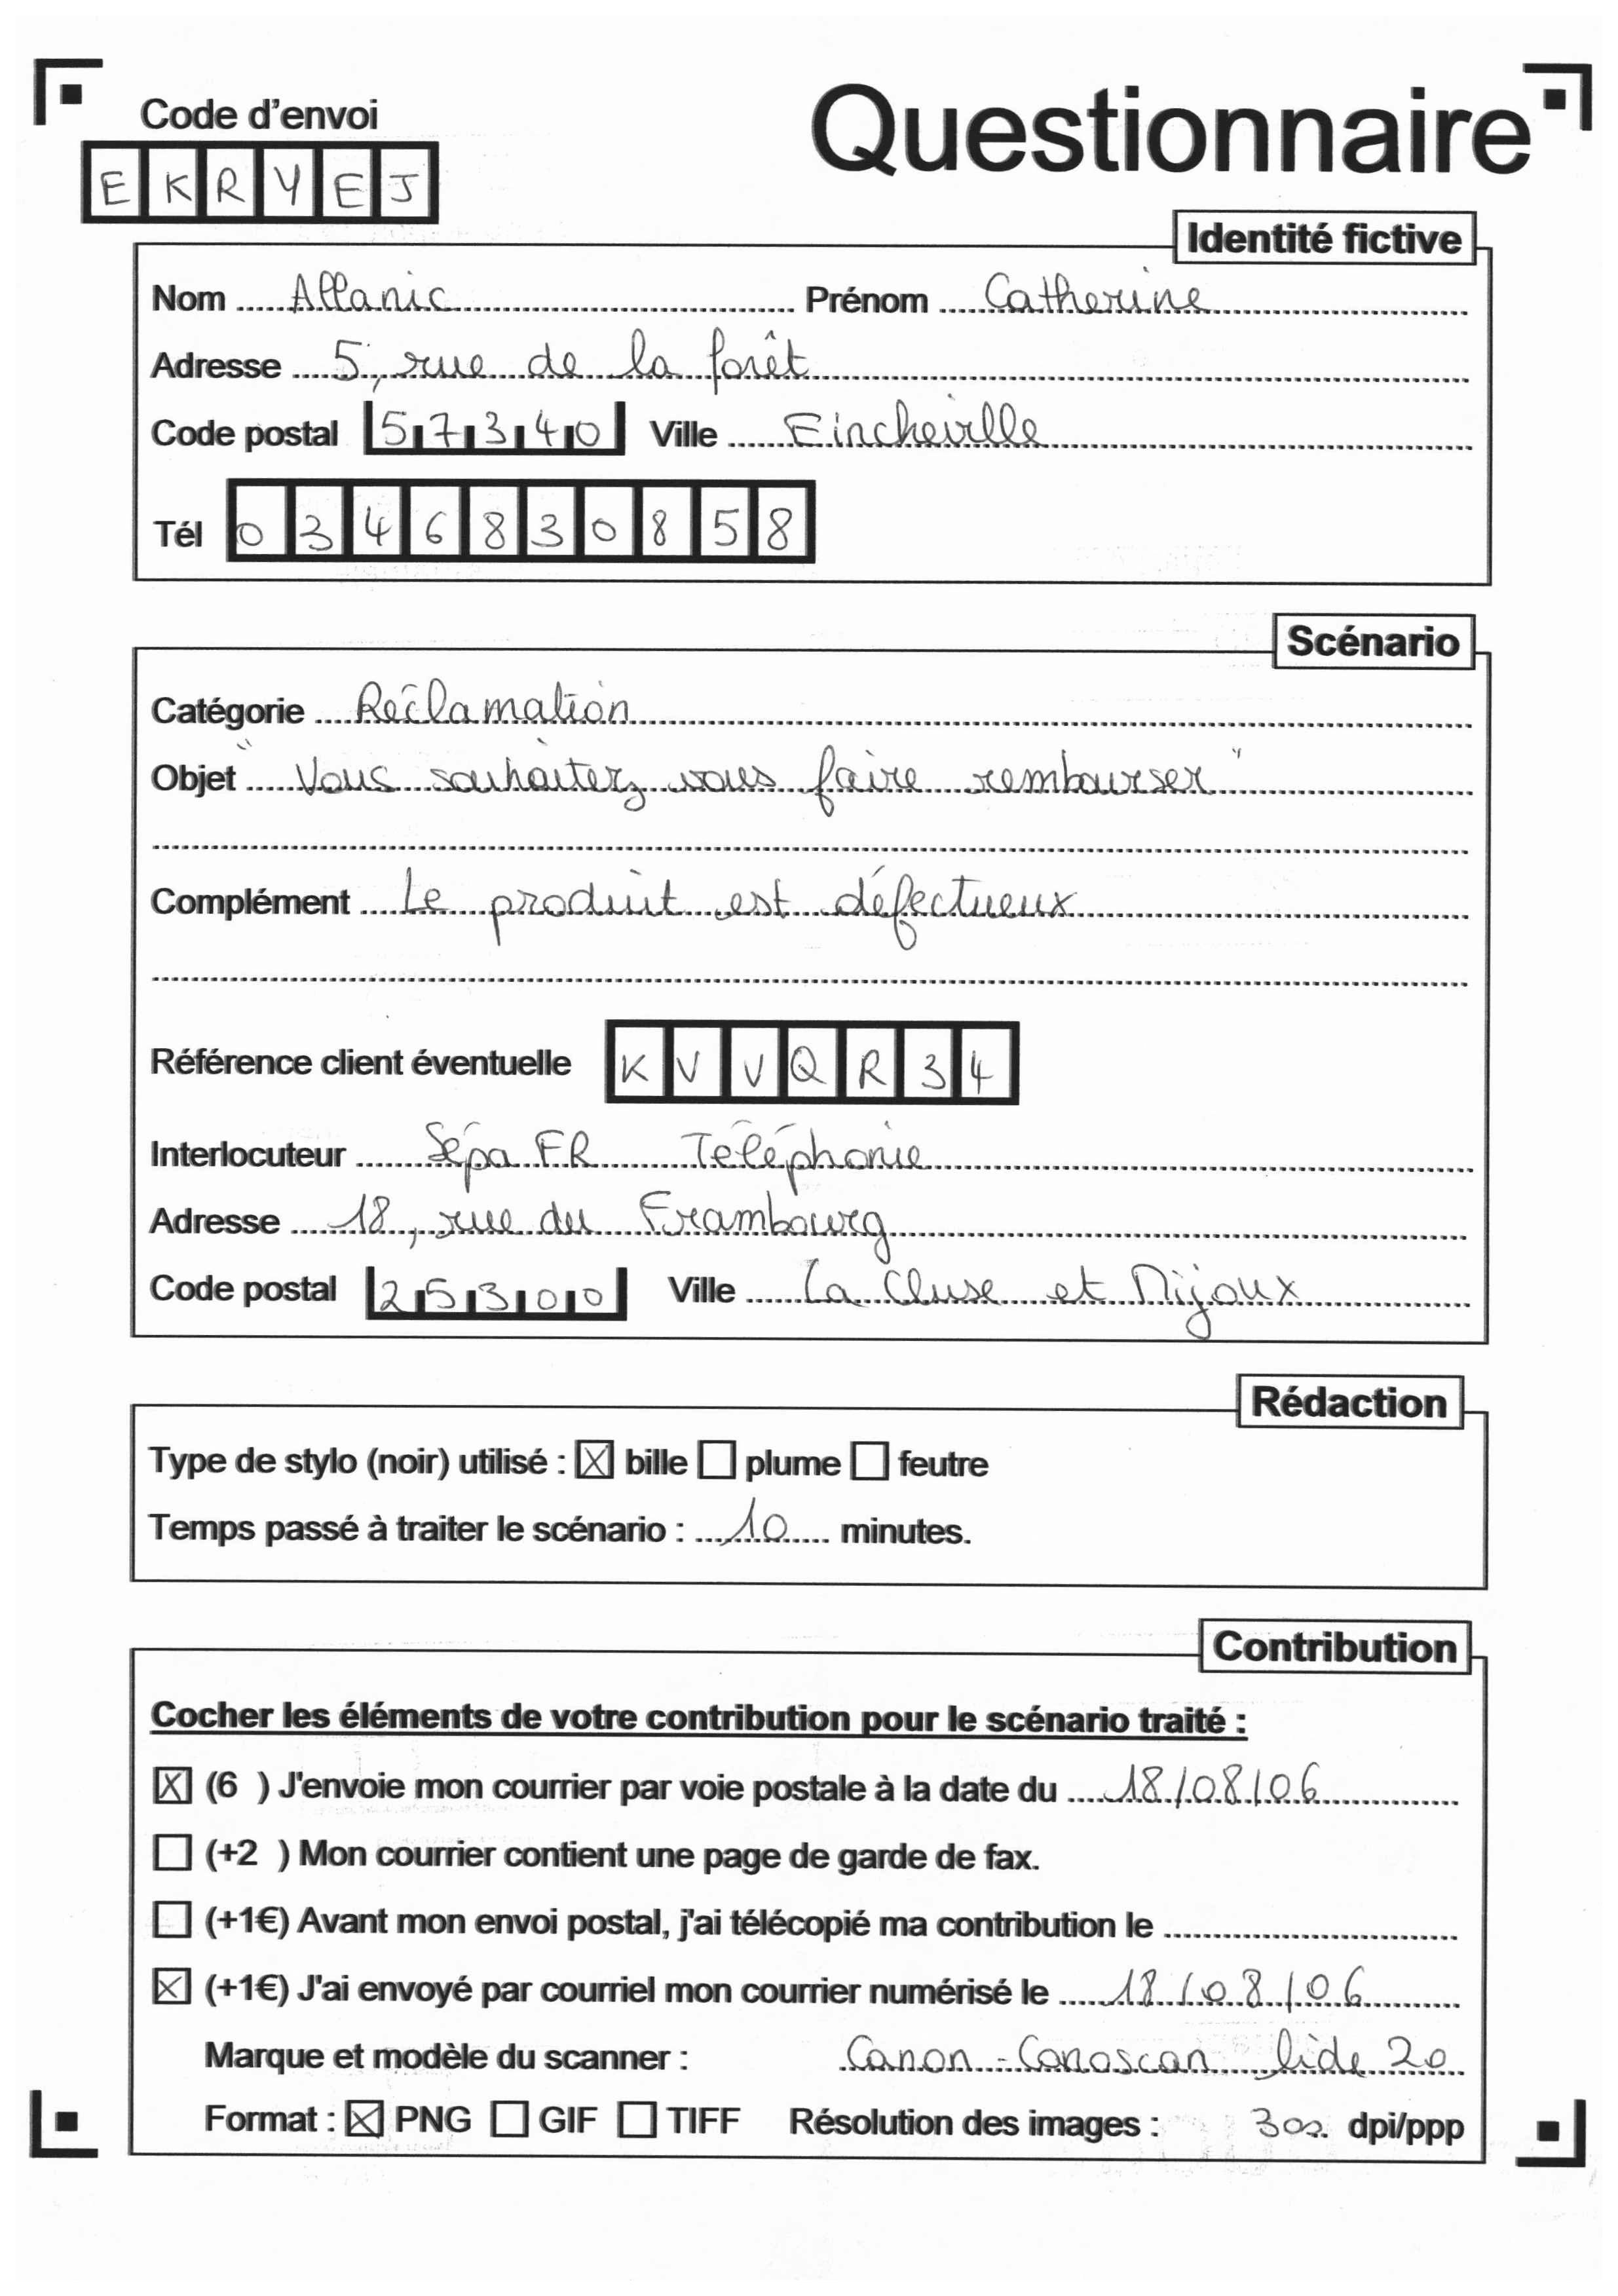 Code d'envoi
Questionnaire
E K R Y E J
Identité fictive
Nom Allanic Prénom Catherine
Adresse 5, rue de la forêt
Code postal 57340 Ville Eincheville
Tél 0346830858
Scénario
Catégorie Réclamation
Objet "Vous souhaitez vous faire rembourser"
Complément Le produit est défectueux
Référence client éventuelle KVVQR34
Interlocuteur Sépa FR Téléphonie
Adresse 18, rue du Frambourg
Code postal 25300 Ville La Cluse et Mijoux
Rédaction
Type de stylo (noir) utilisé : ☒ bille ☐ plume ☐ feutre
Temps passé à traiter le scénario : 10 minutes.
Contribution
Cocher les éléments de votre contribution pour le scénario traité :
☒ (6 ) J'envoie mon courrier par voie postale à la date du 18/08/06
☐ (+2 ) Mon courrier contient une page de garde de fax.
☐ (+1€) Avant mon envoi postal, j'ai télécopié ma contribution le
☒ (+1€) J'ai envoyé par courriel mon courrier numérisé le 18/08/06
Marque et modèle du scanner : Canon - Canoscan lide 20
Format : ☒ PNG ☐ GIF ☐ TIFF Résolution des images : 300 dpi/ppp